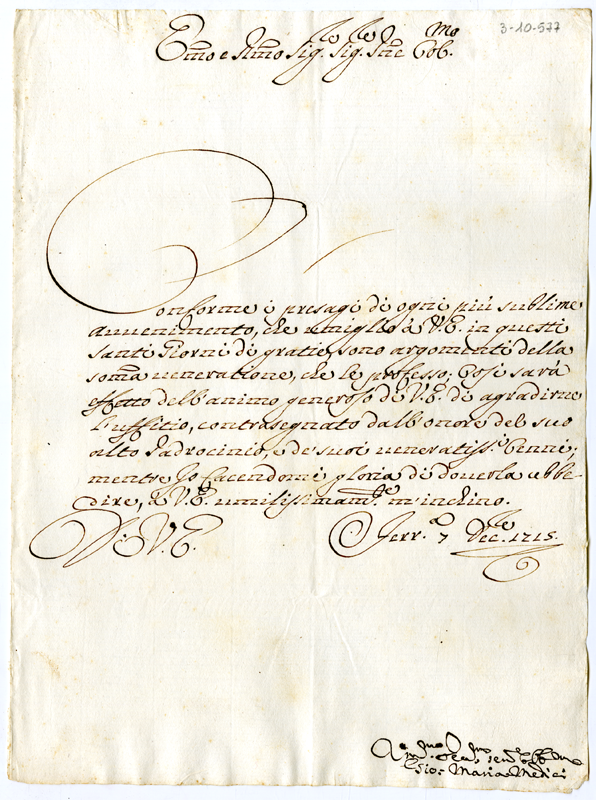 3-10-577
Em̃o e Rmo Sig. Sig. Pne Col.mo
Conforme i presagi di ogni più sublime
auuenimento, che umiglio à V.E. in questi
Santi Giorni di gratie, sono argomenti della
som̃a ueneratione, che le professo, Così sarà
effetto dell'animo generoso di V.E. di agradirne
l'uffitio, contrasegnato dall'onore del suo
alto Padrocinio, e de' suoi ueneratiss.i Cenni,
mentre Io facendomi gloria di douerla ubbe-
dire, à V.E. umilissimam.te m'inchino.
Di V.E.
Ferr.a 7 Dec.e 1715.
Gio: Maria Medici